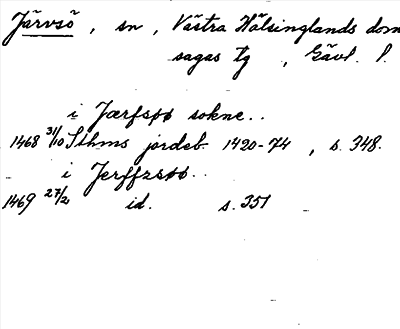 Järvsö, sn, Västra Hälsinglands dom
sagas tg, Gävl. l.
i Jærfsøø sokne..
1468 31/10 Sthms jordeb. 1420-74, s. 348.
i Jerffzsøø..
1469 27/2 id. s. 351